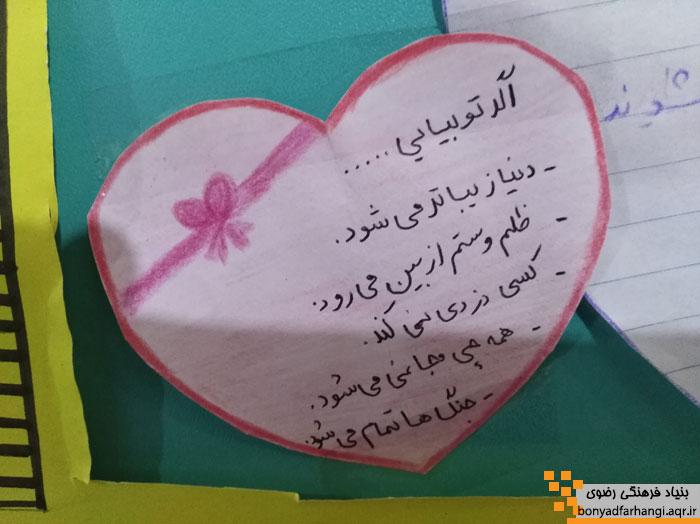 اگر تو بیایی .....
- دنیا زیباتر می شود.
- ظلم و ستم از بین می رود.
- کسی دزدی نمی کند.
- همه چی مجانی می شود.
- جنگ ها تمام می شود.
بنیاد فرهنگی رضوی
bonyadfarhangi.aqr.ir